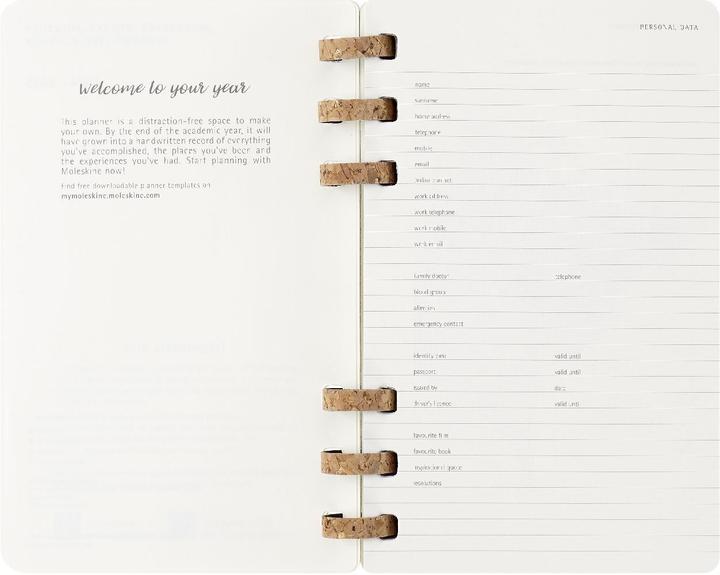 welcome to your year
This planner is a distraction-free space to make
your own. By the end of the academic year, it will
have grown into a handwritten record of everything
you've accomplished, the places you've been and
the experiences you've had. Start planning with
Moleskine now!
Find free downloadable planner templates on
mymoleskine.moleskine.com
PERSONAL DATA
name
surname
home address
telephone
mobile
email
work address
work telephone
work mobile
work email
family doctor telephone
blood group
allergies
emergency contact
identity card valid until
passport valid until
issued by date
driver's licence valid until
favourite film
favourite book
inspirational quote
resolutions